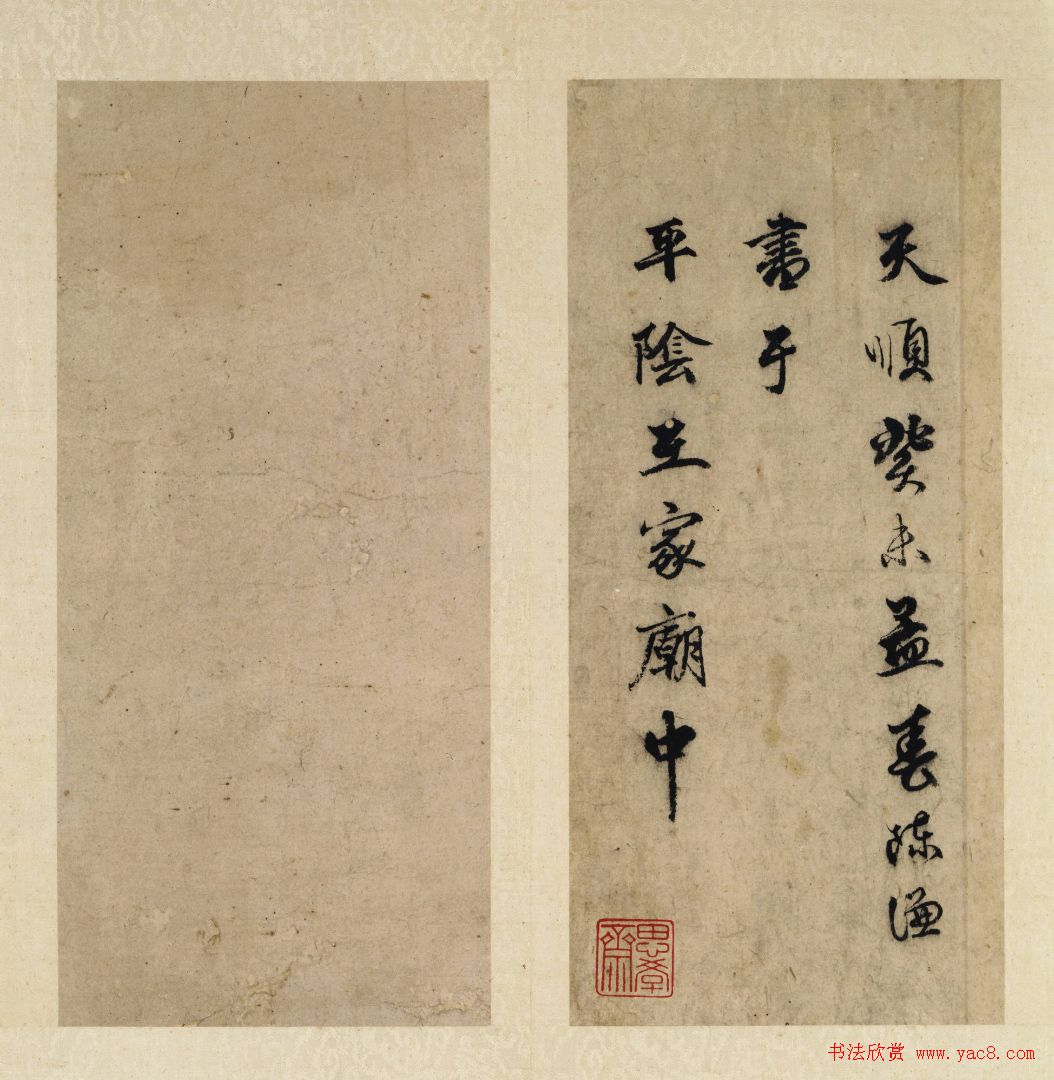 天順癸未孟春陳謙
書于
平陰王家廟中
书法欣赏 www.yac8.com